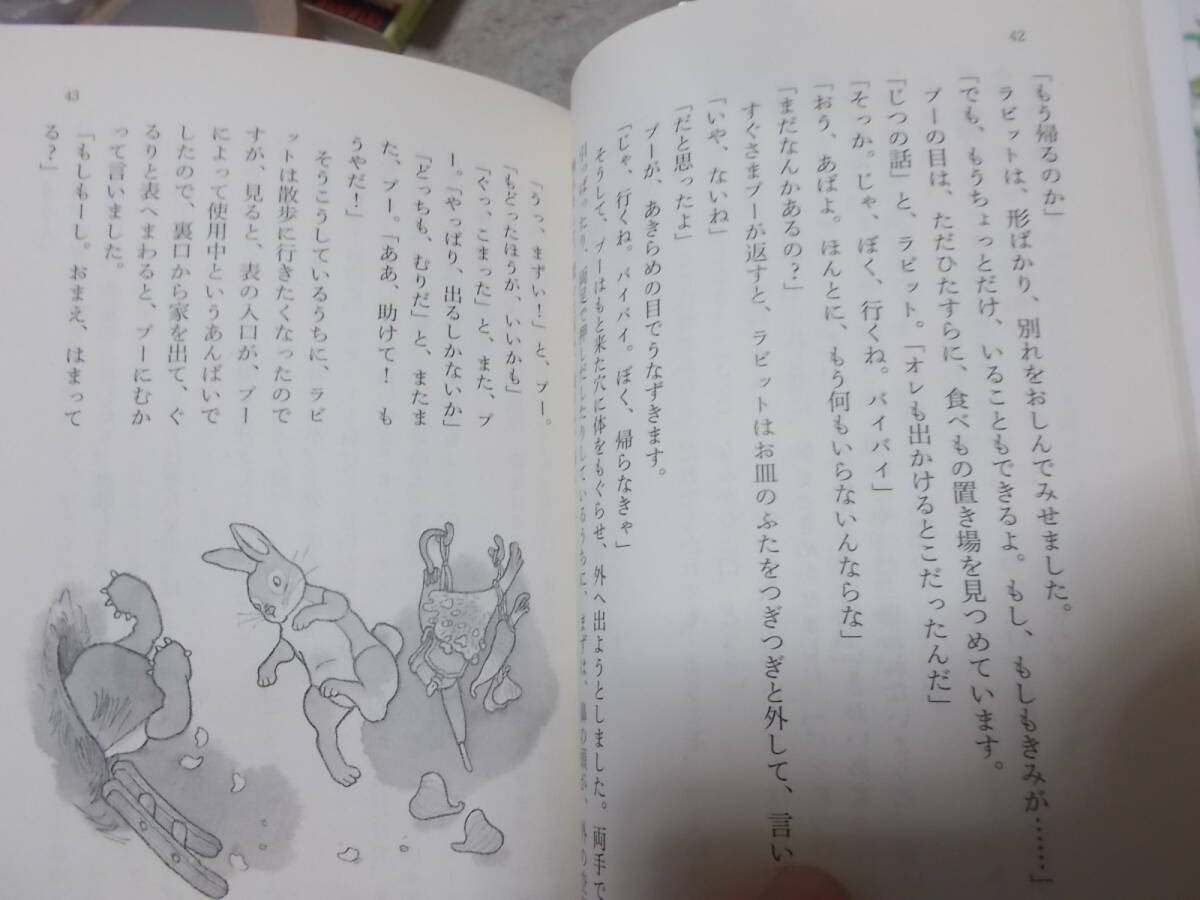 42
「もう帰るのか」
ラビットは、形ばかり、別れをおしんでみせました。
「でも、もうちょっとだけ、いることもできるよ。もし、もしもきみが……」
プーの目は、ただひたすらに、食べもの置き場を見つめています。
「じつの話」と、ラビット。「オレも出かけるとこだったんだ」
「そっか。じゃ、ぼく、行くね。バイバイ」
「おう、あばよ。ほんとに、もう何もいらないんならな」
「まだなんかあるの？」
すぐさまプーが返すと、ラビットはお皿のふたをつぎつぎと外して、言い
「いや、ないね」
「だと思ったよ」
プーが、あきらめの目でうなずきます。
「じゃ、行くね。バイバイ。ぼく、帰らなきゃ」
そうして、プーはもと来た穴に体をもぐらせ、外へ出ようとしました。両手で
引っぱったり、両足で押しだしたりしているうちに、まずは、鼻の頭が、外の空
43
「うっ、まずい！」と、プー。
「もどったほうが、いいかも」
「ぐっ、こまった」と、また、プ
ー。「やっぱり、出るしかないか」
「どっちも、むりだ」と、またま
た、プー。「ああ、助けて！　も
うやだ！」
そうこうしているうちに、ラビ
ットは散歩に行きたくなったので
すが、見ると、表の入口が、プー
によって使用中というあんばいで
したので、裏口から家を出て、ぐ
るりと表へまわると、プーにむか
って言いました。
「もしもーし。おまえ、はまって
る？」